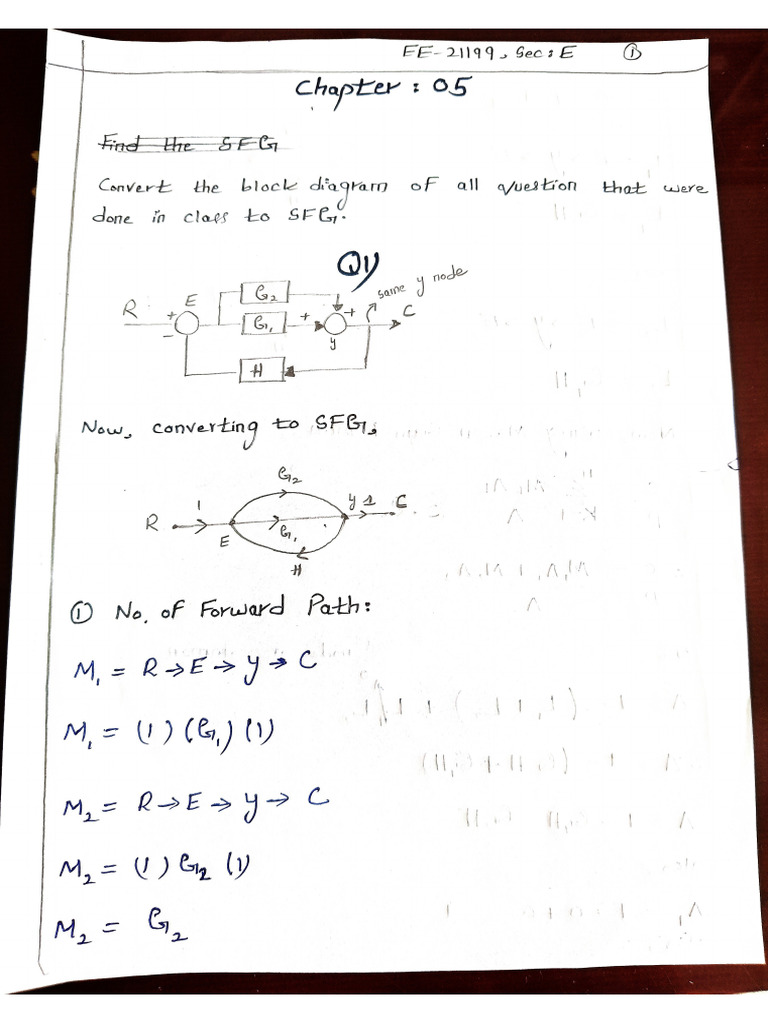 EE-21199, Sec: E ①
Chapter: 05
Find the SFG
Convert the block diagram of all question that were
done in class to SFG.
Q1)
same y node
R + E G2 + C
- G1 + y
H
Now, converting to SFG,
G2
R 1 E G1 y 1 C
H
① No. of Forward Path:
M1 = R → E → y → C
M1 = (1) (G1) (1)
M2 = R → E → y → C
M2 = (1) G2 (1)
M2 = G2